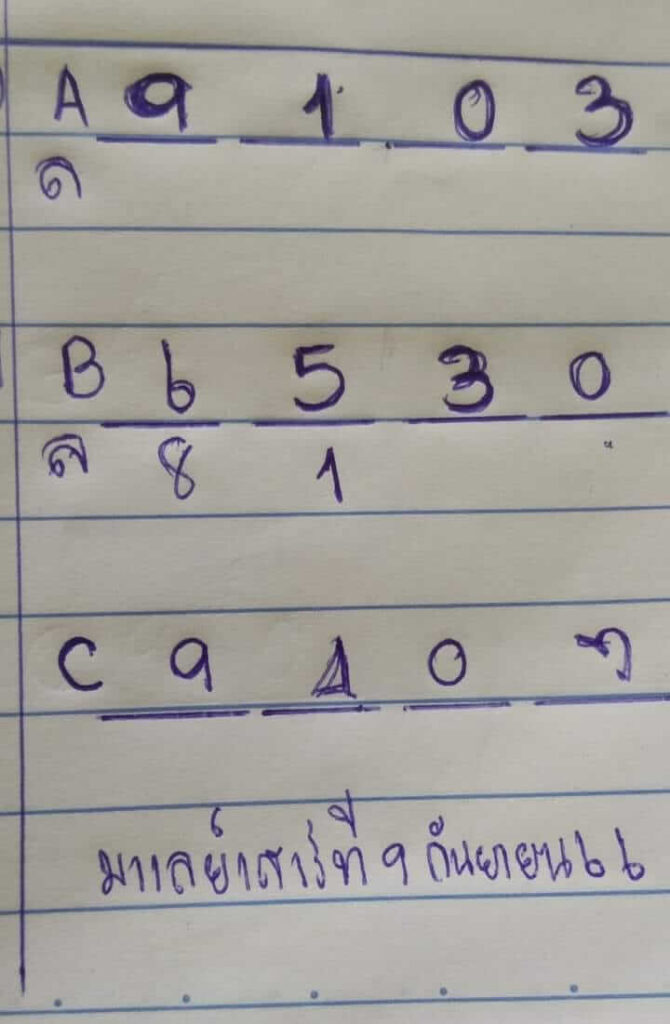 A 9 1 0 3
ด
B 6 5 3 0
ล 8 1
C 9 1 0 7
มาเลย์เสาร์ที่ 9 กันยายน 66